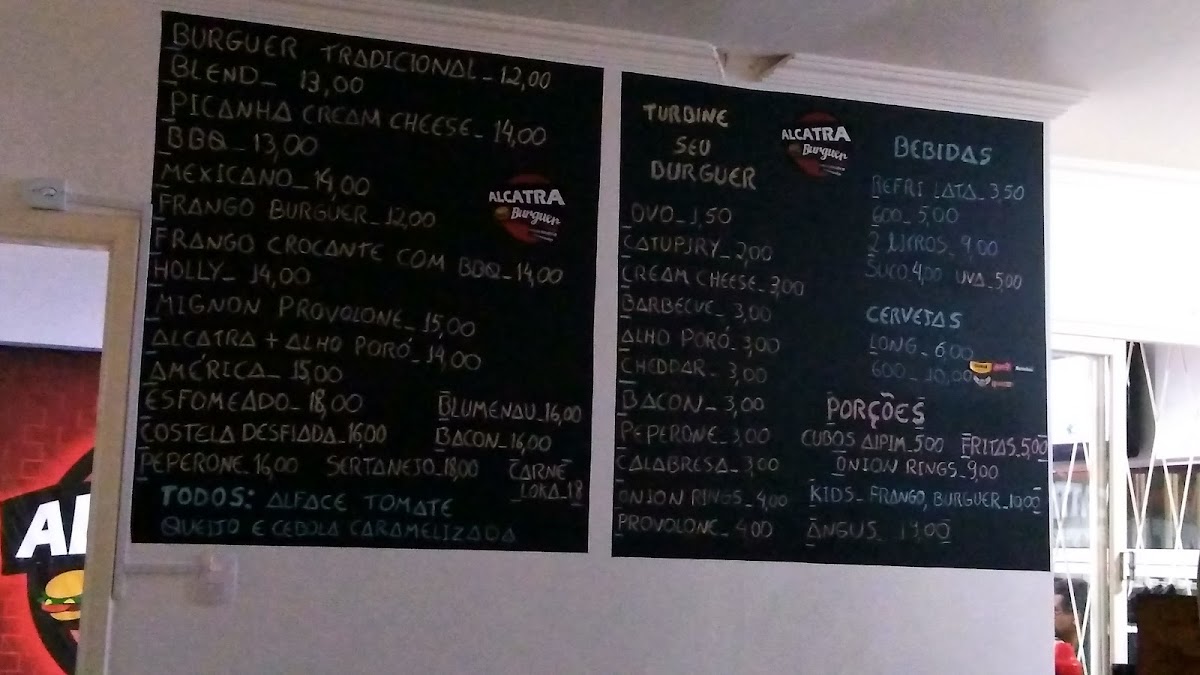 BURGUER TRADICIONAL_12,00
BLEND_ 13,00
PICANHA CREAM CHEESE_ 14,00
BBQ_ 13,00
MEXICANO_14,00
FRANGO BURGUER_12,00
FRANGO CROCANTE COM BBQ_14,00
HOLLY_ 14,00
MIGNON PROVOLONE_15,00
ALCATRA + ALHO PORÓ_14,00
AMÉRICA_ 15,00
ESFOMEADO_18,00
BLUMENAU_16,00
COSTELA DESFIADA_16,00
BACON_16,00
PEPERONE_16,00
SERTANEJO_18,00
CARNE
LOKA_18
TODOS: ALFACE TOMATE
QUEIJO E CEBOLA CARAMELIZADA
ALCATRA
Burguer
TURBINE
SEU
BURGUER
OVO_1,50
CATUPIRY_2,00
CREAM CHEESE_3,00
BARBECUE_3,00
ALHO PORÓ_3,00
CHEDDAR_3,00
BACON_3,00
PEPERONE_3,00
CALABRESA_3,00
ONION RINGS_4,00
PROVOLONE_4,00
ALCATRA
Burguer
BEBIDAS
REFRI LATA_3,50
600_5,00
2 LITROS_9,00
SUCO 4,00 UVA_5,00
CERVEJAS
LONG_6,00
600_10,00
PORÇÕES
CUBOS AIPIM_5,00 FRITAS_5,00
ONION RINGS_9,00
KIDS_FRANGO, BURGUER_10,00
ANGUS_
AL